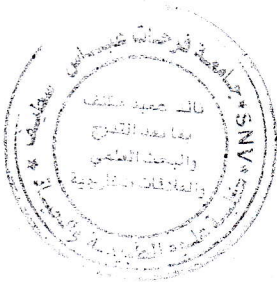 جامعة فرحات عباس سطيف
* SNV *
نائب عميد مكلف
بما بعد التدرج
والبحث العلمي
والعلاقات الخارجية
كلية علوم الطبيعة و